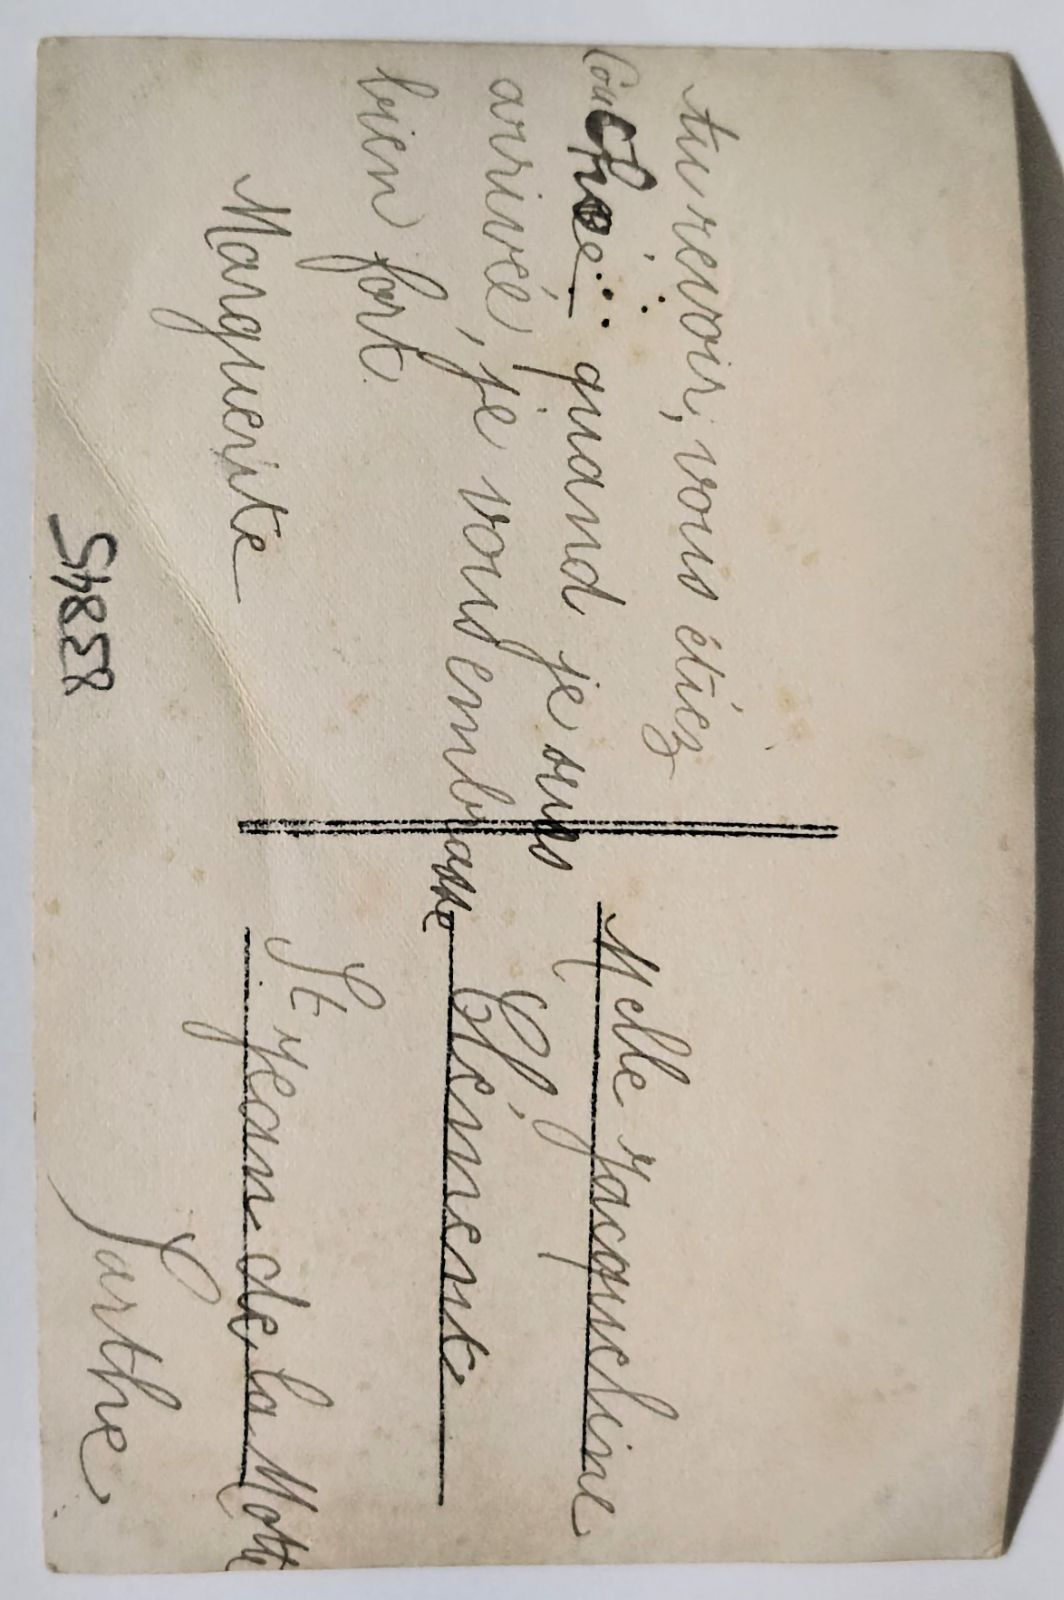 Au revoir, vous étiez
couchée quand je suis
arrivé, je vous embrasse
bien fort.
Marguerite
Melle Jacqueline
Clément
St Jean de la Motte
Sarthe